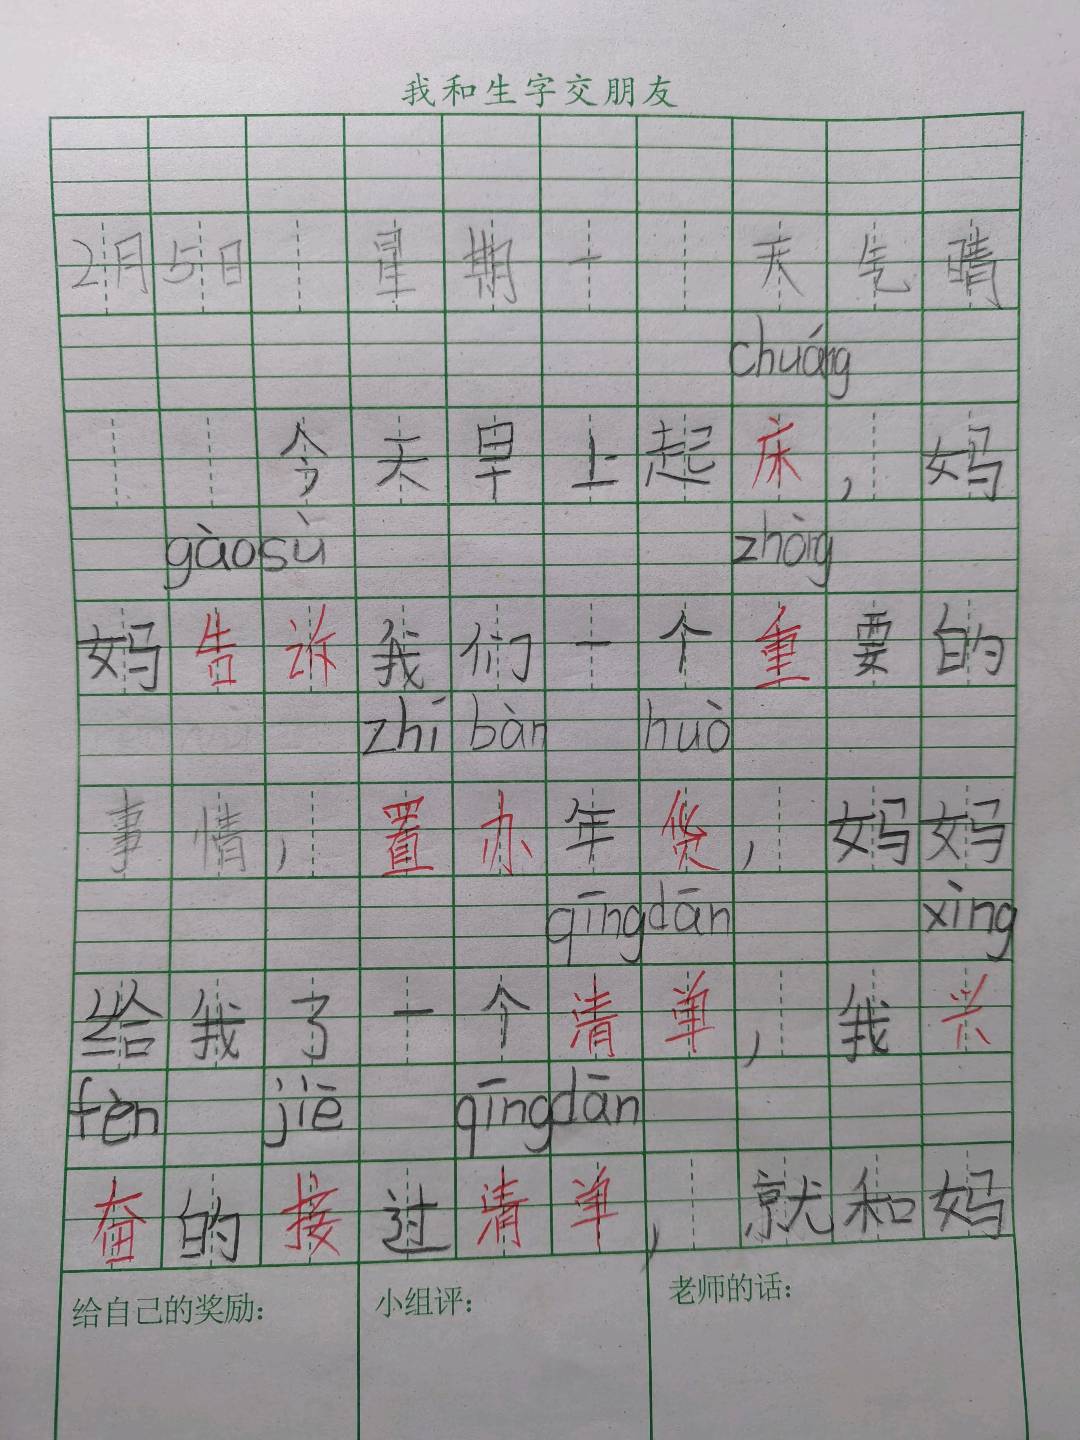 我和生字交朋友
2月5日 星期一 天气晴
chuáng
今天早上起床，妈
gàosù zhòng
妈告诉我们一个重要的
zhí bàn huò
事情，置办年货，妈妈
qīngdān xìng
给我了一个清单，我兴
fèn jiē qīngdān
奋的接过清单，就和妈
给自己的奖励： 小组评： 老师的话：